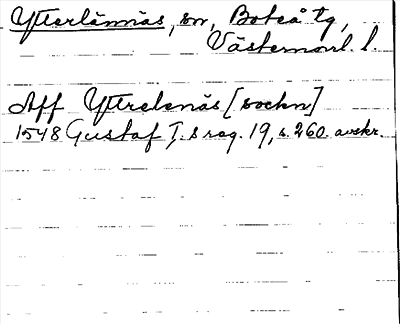 Ytterlännäs, sn, Boteå tg,
Västernorrl. l.
Aff Yttrelenäs [sockn]
1548 Gustaf I:s reg. 19, s. 260. avskr.